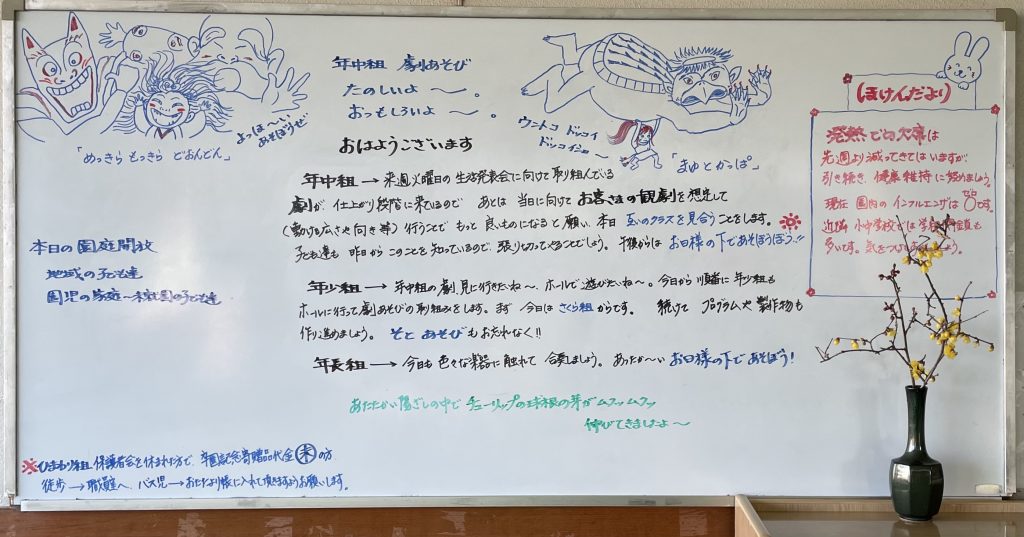 よっほ〜い
あそぼうぜ
「めっきら もっきら どおんどん」
年中組 劇あそび
たのしいよ 〜 。
おっもしろいよ 〜 。
おはようございます
ウントコ ドッコイ
ドッコイショ〜
「まゆとかっぱ」
年中組 → 来週火曜日の生活発表会に向けて取り組んでいる
劇が 仕上がり段階に来ているので あとは 当日に向けて お客さまの観劇を想定して
(動ける広さや向き等) 行うことで もっと 良いものになると願い、本日 互いのクラスを見合うことをします。
子ども達も 昨日から このことを知っているので、張り切ってやることでしょう。 午後からは お日様の下であそぼうぼう!!
年少組 → 年中組の劇、見に行きたいね〜、ホールで遊びたいね〜。今日から順番に年少組も
ホールに行って劇あそびの取り組みをします。まず 今日は さくら組からです。 続けて プログラムや製作物も
作り進めましょう。 そとあそびもおわすれなく!!
年長組 → 今日も色々な楽器に触れて 合奏しましょう。あったか〜い お日様の下であそぼう!
あたたかい陽ざしの中で チューリップの球根の芽がムフッムフッ
伸びてきましたよ〜
本日の園庭開放
地域の子ども達
園児の家庭〜未就園の子ども達
※ひまわり組 保護者会を休まれた方で、卒園記念寄贈品代金 未 の方
徒歩 → 職員室へ、バス児 → おたより帳に入れて頂きますようお願いします。
ほけんだより
発熱での欠席は
先週より減ってきてはいますが、
引き続き、健康維持に努めましょう。
現在 園内のインフルエンザは 0です。
近隣 小中学校では 学級閉鎖も
多いです。気をつけましょう。